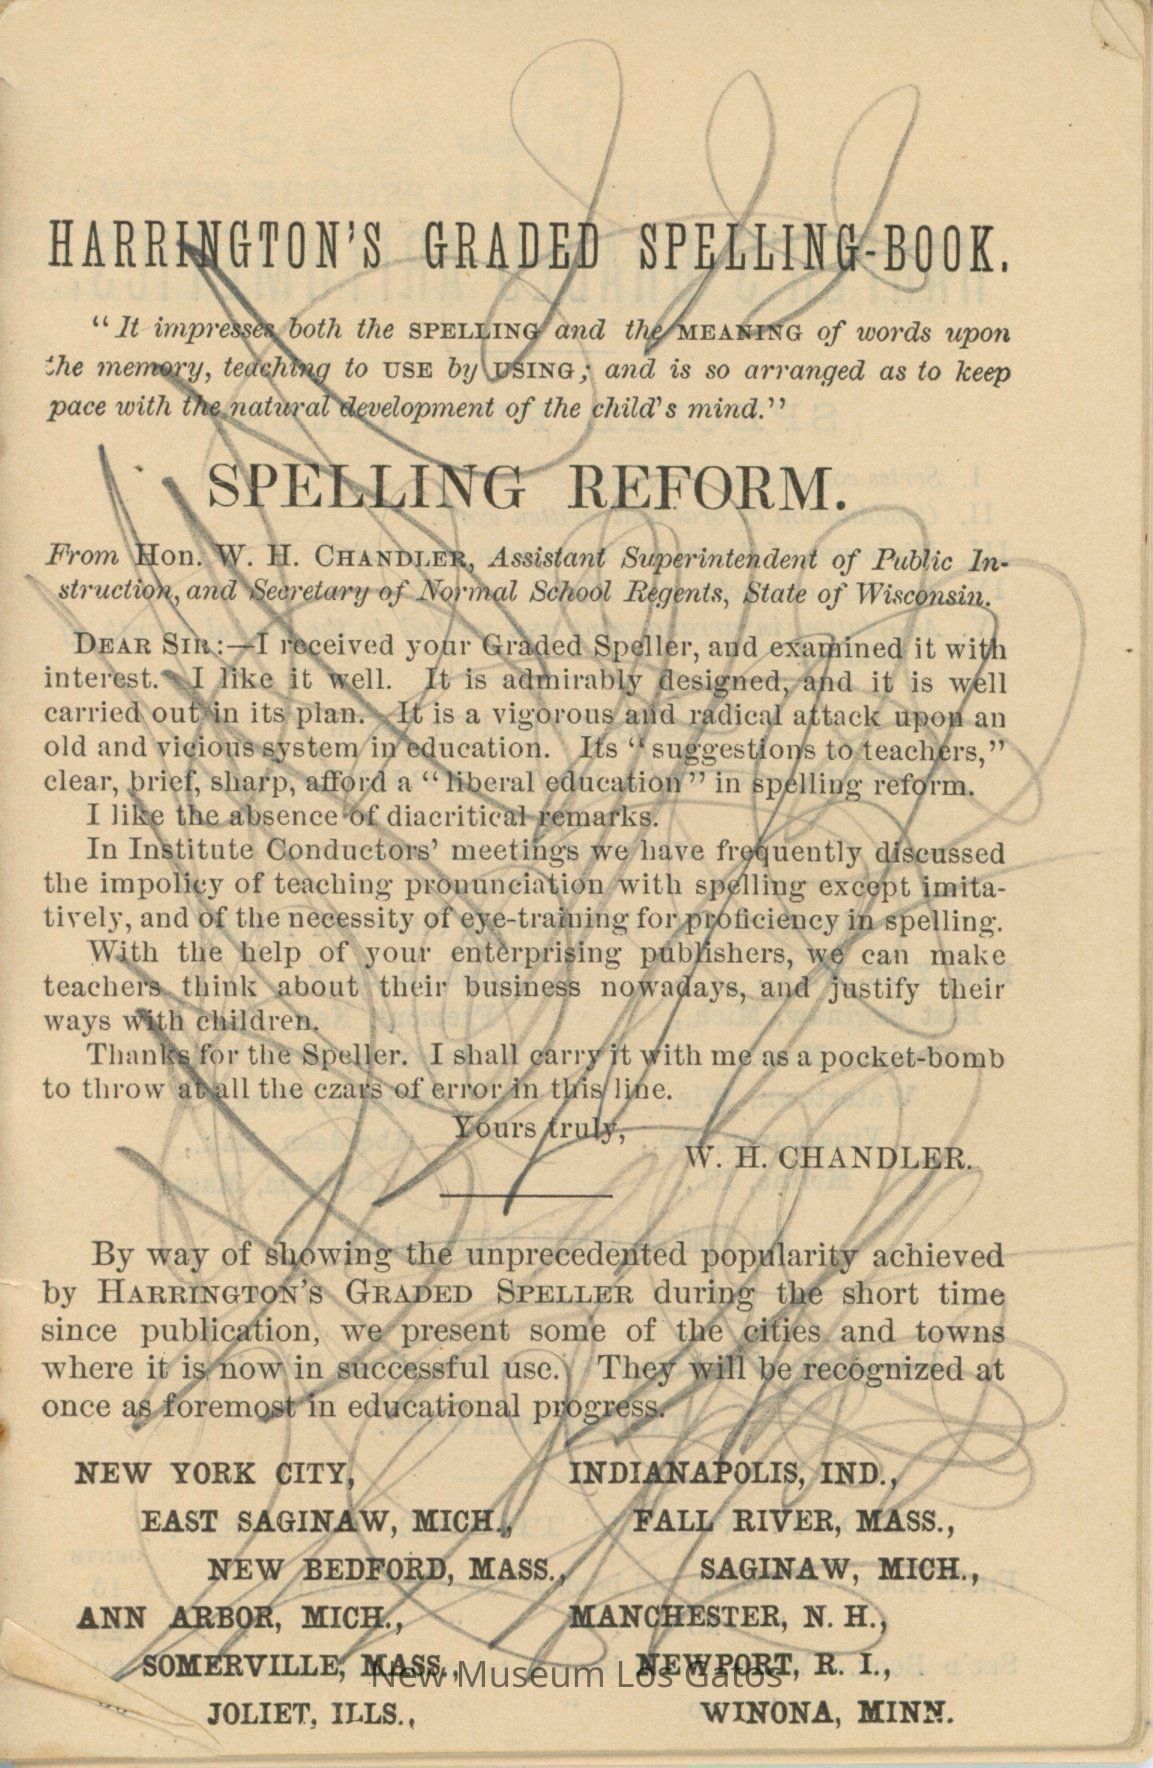 HARRINGTON'S GRADED SPELLING-BOOK.
"It impresses both the SPELLING and the MEANING of words upon
the memory, teaching to USE by USING; and is so arranged as to keep
pace with the natural development of the child's mind."
SPELLING REFORM.
From Hon. W. H. CHANDLER, Assistant Superintendent of Public In-
struction, and Secretary of Normal School Regents, State of Wisconsin.
DEAR SIR:—I received your Graded Speller, and examined it with
interest. I like it well. It is admirably designed, and it is well
carried out in its plan. It is a vigorous and radical attack upon an
old and vicious system in education. Its "suggestions to teachers,"
clear, brief, sharp, afford a "liberal education" in spelling reform.
I like the absence of diacritical remarks.
In Institute Conductors' meetings we have frequently discussed
the impolicy of teaching pronunciation with spelling except imita-
tively, and of the necessity of eye-training for proficiency in spelling.
With the help of your enterprising publishers, we can make
teachers think about their business nowadays, and justify their
ways with children.
Thanks for the Speller. I shall carry it with me as a pocket-bomb
to throw at all the czars of error in this line.
Yours truly,
W. H. CHANDLER.
By way of showing the unprecedented popularity achieved
by HARRINGTON'S GRADED SPELLER during the short time
since publication, we present some of the cities and towns
where it is now in successful use. They will be recognized at
once as foremost in educational progress.
NEW YORK CITY, INDIANAPOLIS, IND.,
EAST SAGINAW, MICH., FALL RIVER, MASS.,
NEW BEDFORD, MASS., SAGINAW, MICH.,
ANN ARBOR, MICH., MANCHESTER, N. H.,
SOMERVILLE, MASS., NEWPORT, R. I.,
New Museum Los Gatos
JOLIET, ILLS., WINONA, MINN.